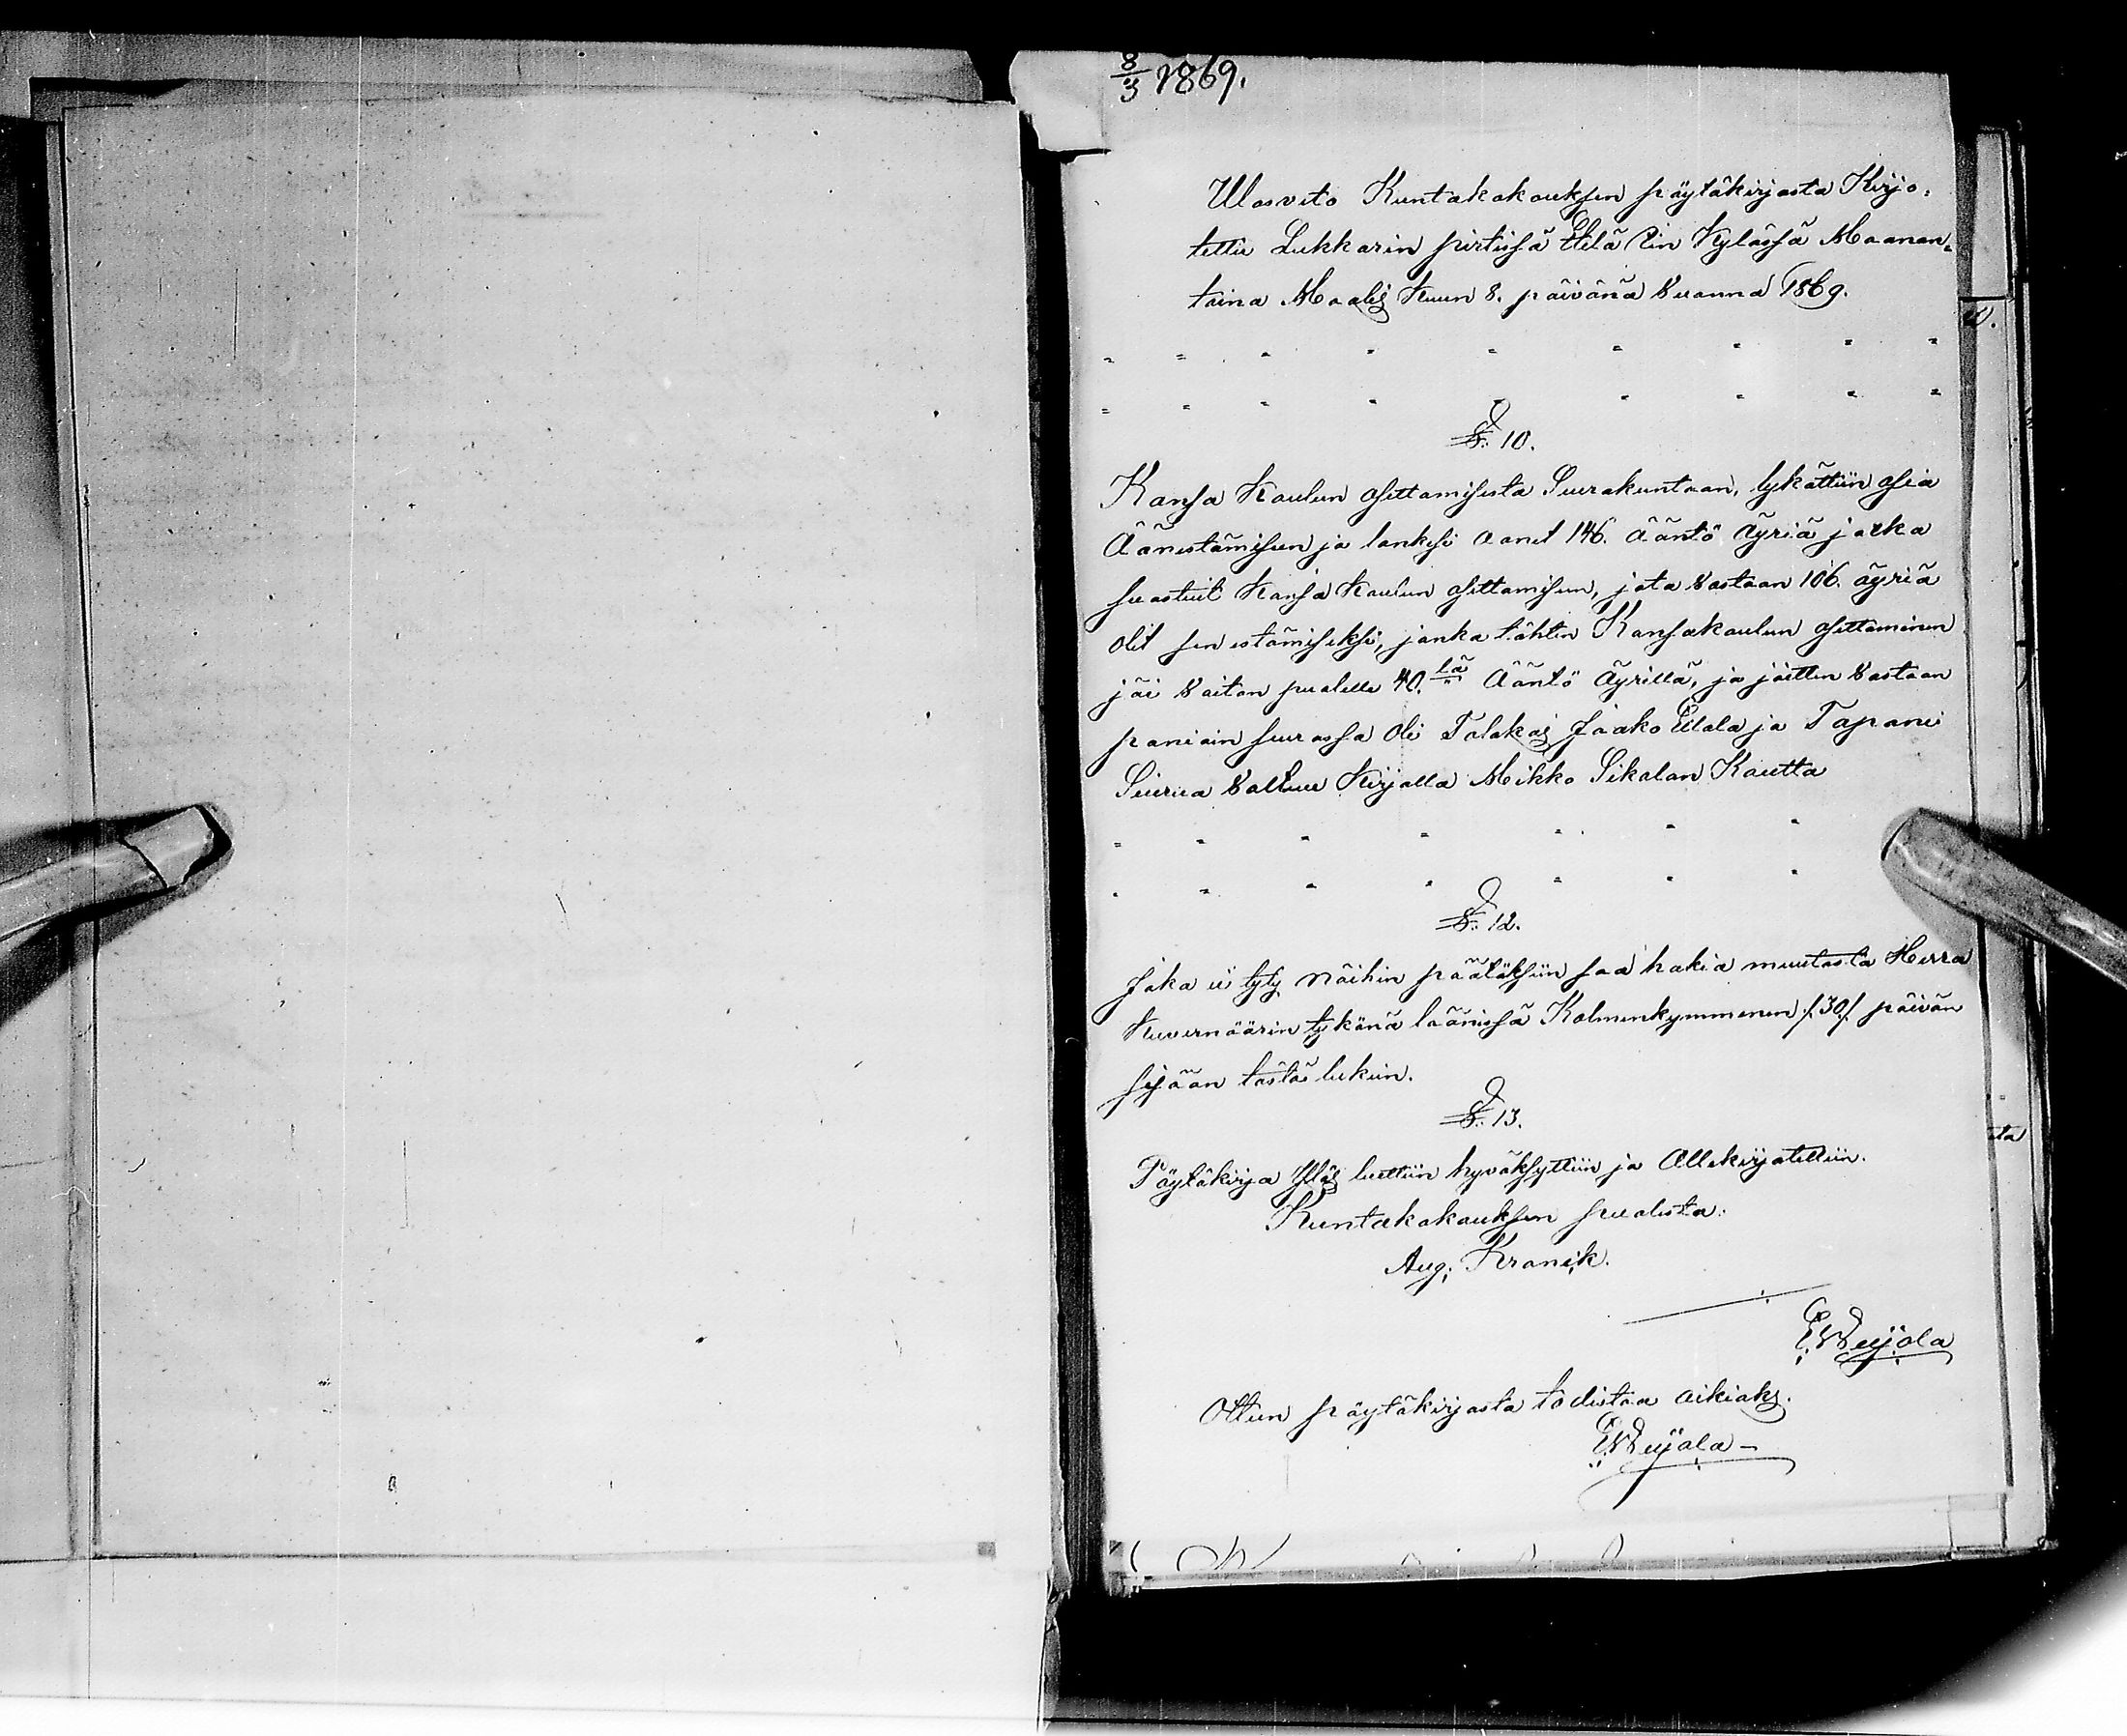 8/3 1869.
Ulosveto Kuntakokouksen pöytäkirjasta Kirjo-
tettu Lukkarin pirtissä Etelä Iin Kylässä Maanan-
taina Maalis Kuun 8. päivänä Vuonna 1869.
" " " " " " " " "
" " " " " " " "
§. 10.
Kansa Koulun asettamisesta Seurakuntaan, lykättiin asia
Äänestämiseen ja lankesi äänet 146. ääntö äyriä jotka
suostuit Kansa Koulun asettamisen, jota vastaan 106. äyriä
olit sen estämiseksi, jonka tähtin Kansakoulun asettaminen
jäi voiton puolelle 40.tä Ääntö äyrillä, ja joitten vastaan
paniain seurassa oli Talokas Jaako Eilola ja Tapani
Siurua Valtuu Kirjalla Mikko Sikalan Kautta
" " " " " " "
" " " " " " "
§. 12.
Joka ei tydy näihin päätöksiin saa hakia muutosta Herra
Kuvernöörin tykönä läänissä Kolmenkymmenen /:30:/ päivän
sisään tästä lukein.
§. 13.
Pöytäkirja Ylös luettiin hyväksyttiin ja Allekirjotettiin.
Kuntakokouksen puolesta:
Aug: Kranck.
E. W. Leijola
Otteen pöytäkirjasta todistaa oikiaks.